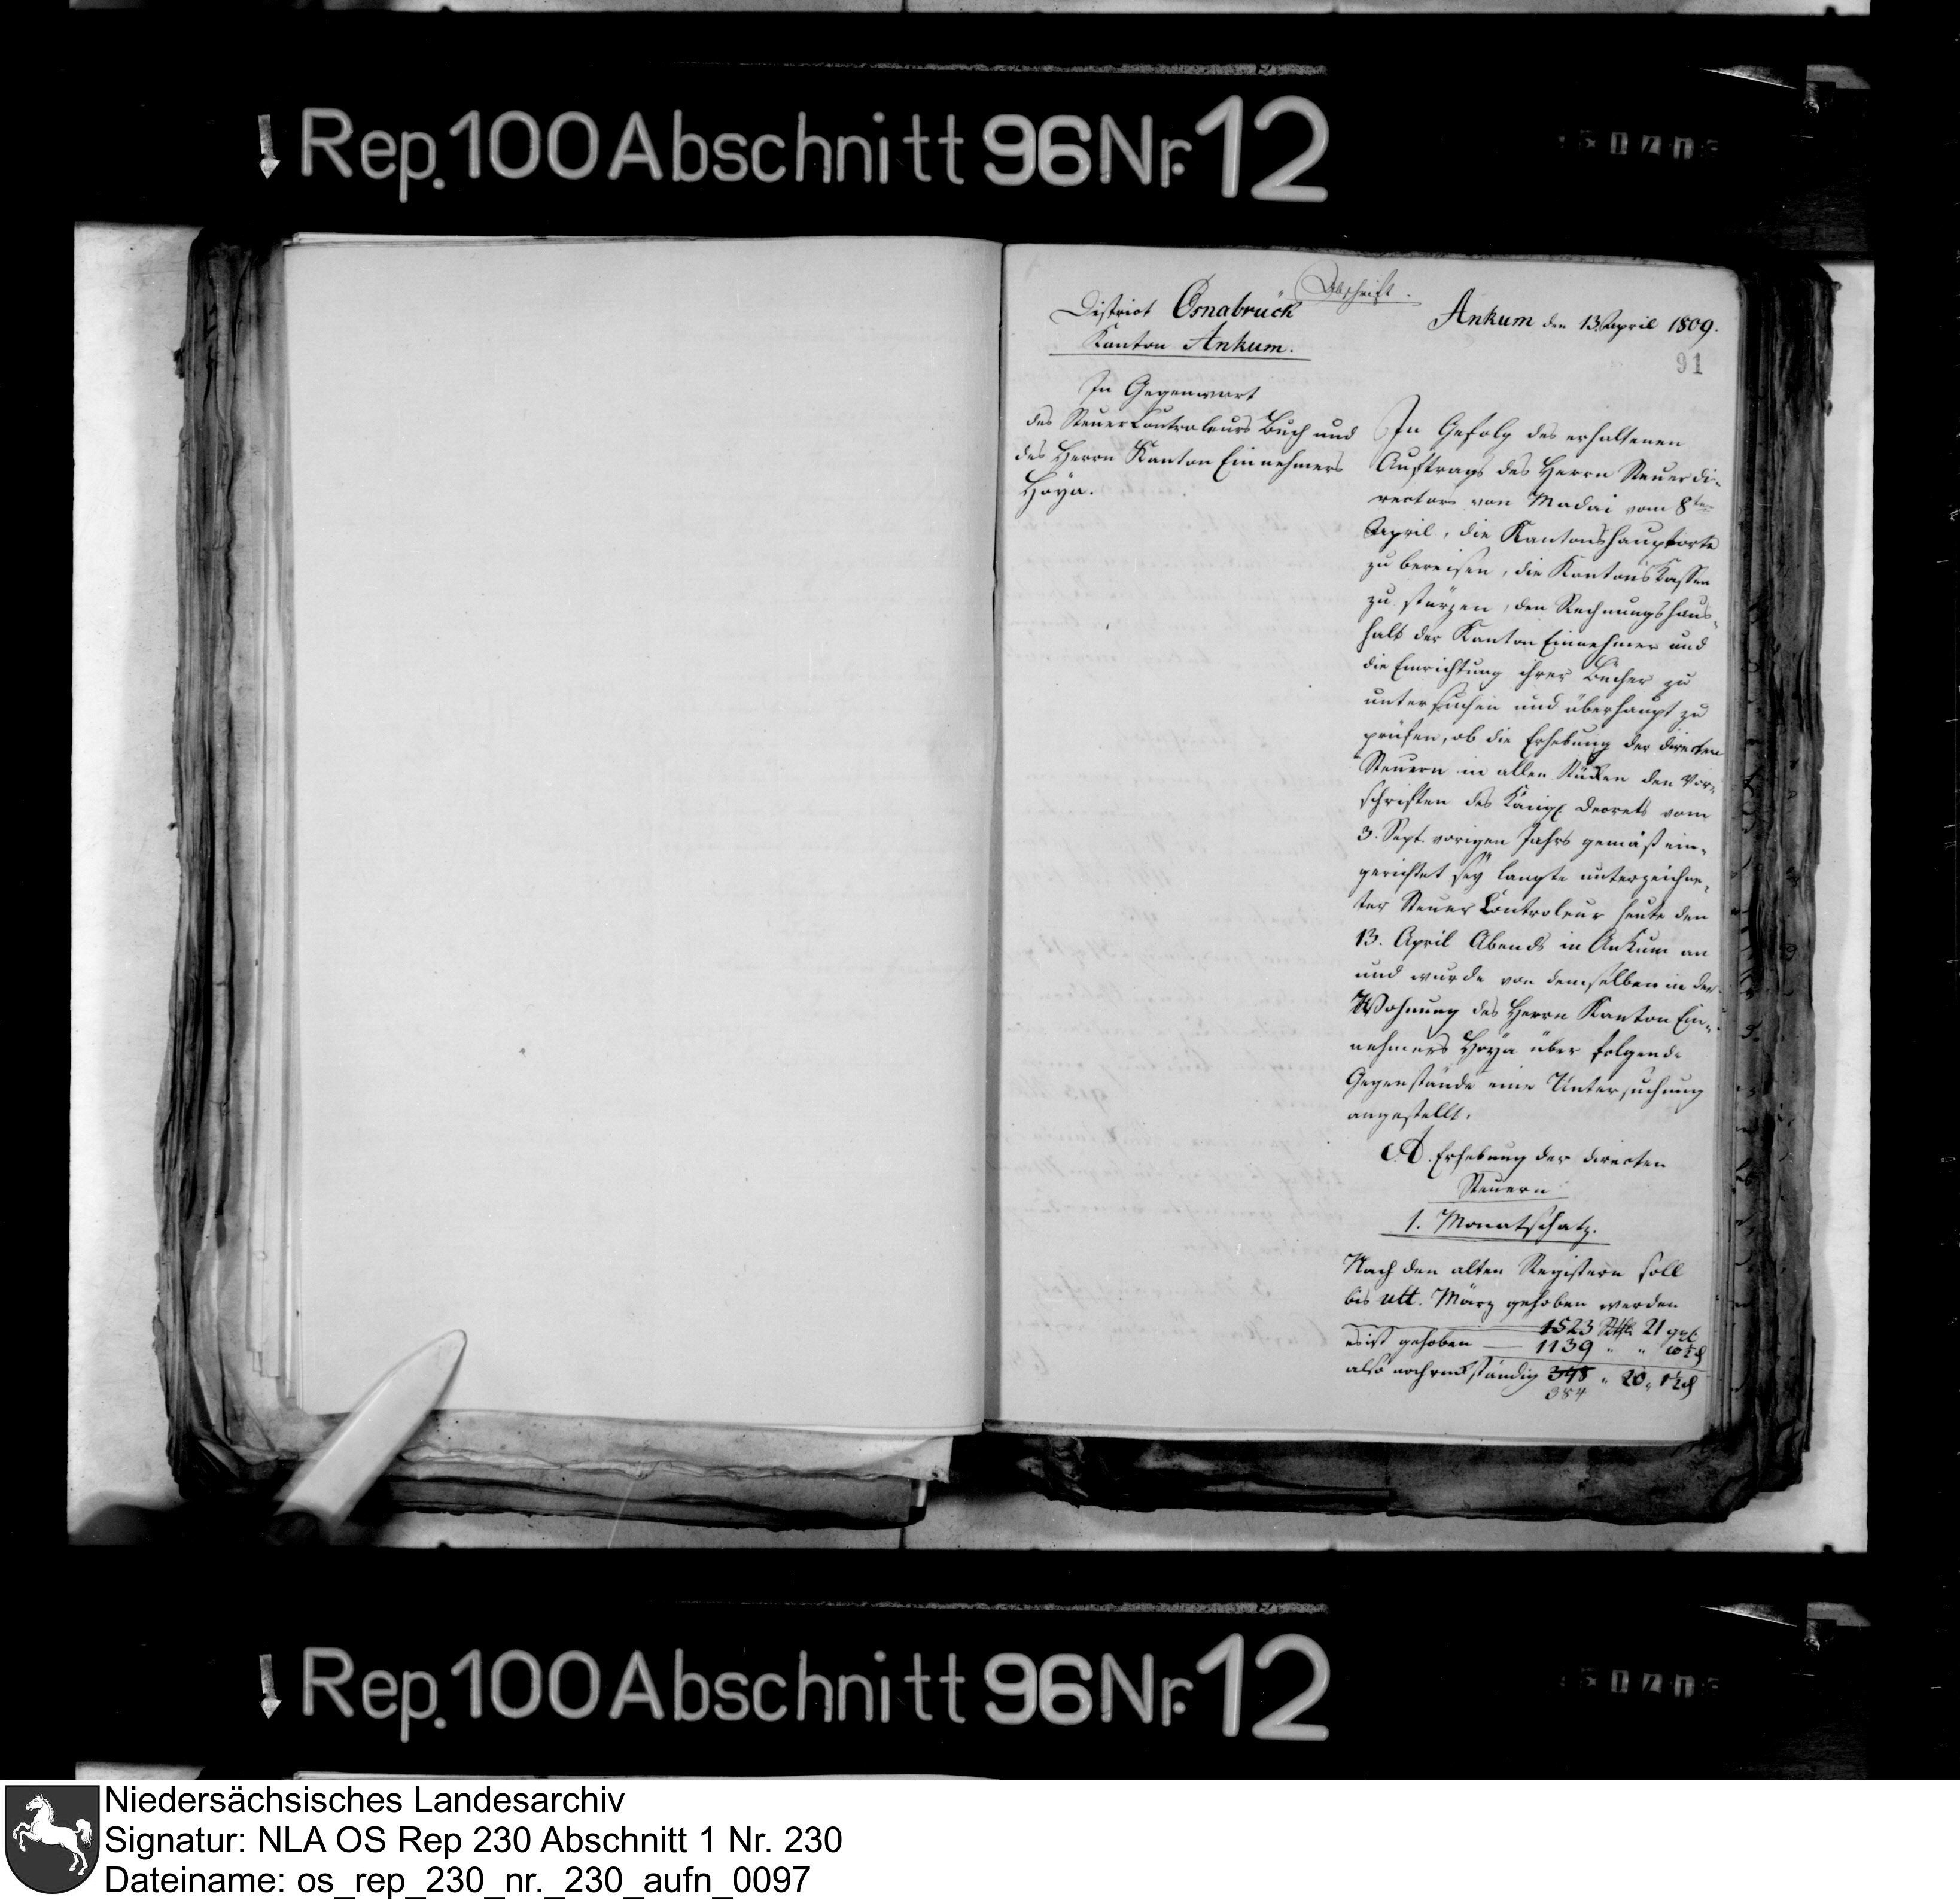 Rep. 100 Abschnitt 96 Nr. 12
Abschrift.
District Osnabrück
Kanton Ankum.
Ankum den 13. April 1809.
91
In Gegenwart
des Steuer Controleurs Buch und
des Herrn Kanton Einnehmers
Hoya.
In Gefolg des erhaltenen
Auftrags des Herrn Steuerdi-
rectors von Madai vom 8ten
April, die Kantonshauptorte
zu bereisen, die Kantons Kassen
zu stürzen, den Rechnungshaus-
halt der Kanton Einnehmer und
die Einrichtung ihrer Bücher zu
untersuchen und überhaupt zu
prüfen, ob die Erhebung der directen
Steuern in allen Stücken den Vor-
schriften des Königl. Decrets vom
3. Sept. vorigen Jahrs gemäß ein-
gerichtet sey langte unterzeichne-
ter Steuer Controleur heute den
13. April Abends in Ankum an
und wurde von demselben in der
Wohnung des Herrn Kanton Ein-
nehmers Hoya über folgende
Gegenstände eine Untersuchung
angestellt.
A. Erhebung der directen
Steuern
1. Monatschatz.
Nach den alten Registern soll
bis ult. März gehoben werden
1523 Rthlr. 21 ggl.
es ist gehoben — 1139 " "
also noch rückständig 348 " 20 "
384
Rep. 100 Abschnitt 96 Nr. 12
Niedersächsisches Landesarchiv
Signatur: NLA OS Rep 230 Abschnitt 1 Nr. 230
Dateiname: os_rep_230_nr._230_aufn_0097